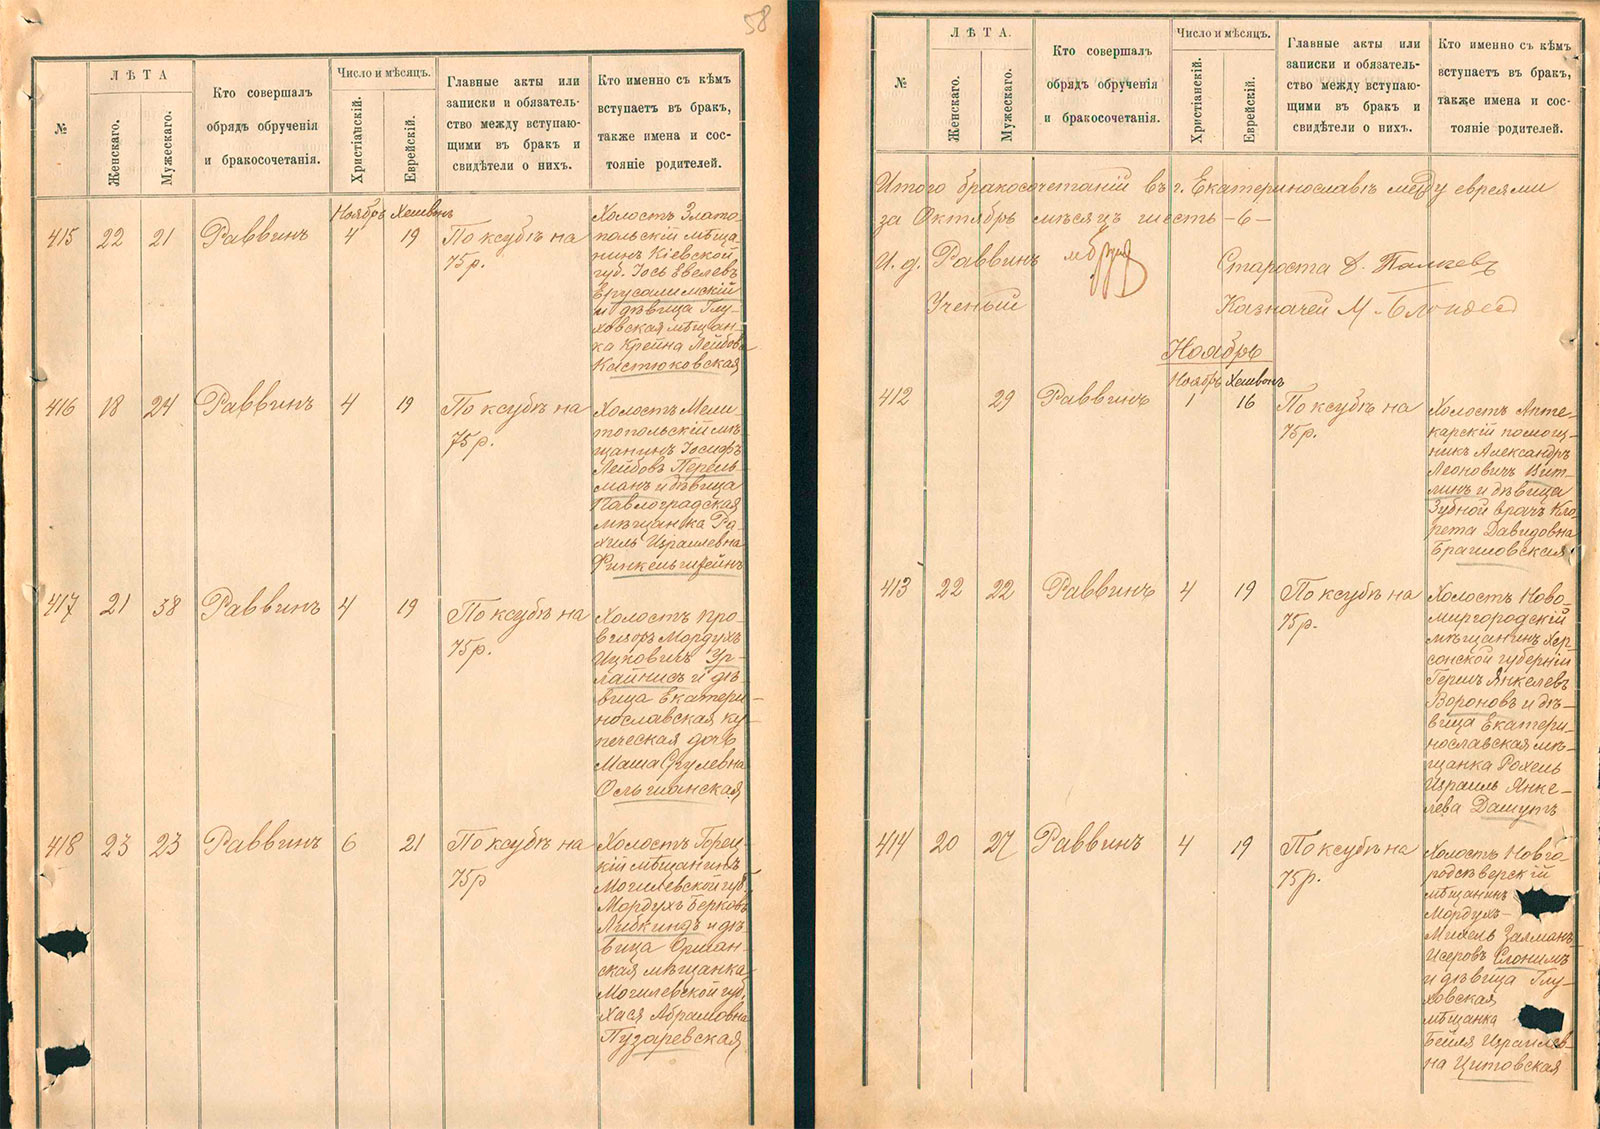 58
№
ЛѢТА
Женскаго.
Мужескаго.
Кто совершалъ
обрядъ обрученія
и бракосочетанія.
Число и мѣсяцъ.
Христіанскій.
Еврейскій.
Главные акты или
записки и обязатель-
ство между вступаю-
щими въ бракъ и
свидѣтели о нихъ.
Кто именно съ кѣмъ
вступаетъ въ бракъ,
также имена и сос-
тояніе родителей.
Ноябрь Хешвонъ
415 22 21 Раввинъ 4 19 По ксубѣ на
75р.
Холостъ Злато-
польскій мѣща-
нинъ Кіевской
губ. Іось Евелевъ
Ерусалимскій
и дѣвица Глу-
ховская мѣщан-
ка Крейна Лейбова
Кастюковская
416 18 24 Раввинъ 4 19 По ксубѣ на
75р.
Холостъ Мели-
топольскій мѣ-
щанинъ Іосифъ
Лейбовъ Перель-
манъ и дѣвица
Павлоградская
мѣщанка Ра-
хиль Израилевна
Финкельштейнъ
417 21 38 Раввинъ 4 19 По ксубѣ на
75р.
Холостъ про-
визоръ Мордухъ
Ицковичъ Ур-
лайнисъ и дѣ-
вица Екатери-
нославская ку-
печеская дочь
Маша Сруlевна
Ольшанская
418 23 23 Раввинъ 6 21 По ксубѣ на
75р
Холостъ Горец-
кій мѣщанинъ
Могилевской губ.
Мордухъ Берковъ
Либкиндъ и дѣ-
вица Оршан-
ская мѣщанка
Могилевской губ.
Хася Абрамовна
Пузаревская
№
ЛѢТА.
Женскаго.
Мужескаго.
Кто совершалъ
обрядъ обрученія
и бракосочетанія.
Число и мѣсяцъ.
Христіанскій.
Еврейскій.
Главные акты или
записки и обязатель-
ство между вступаю-
щими въ бракъ и
свидѣтели о нихъ.
Кто именно съ кѣмъ
вступаетъ въ бракъ,
также имена и сос-
тояніе родителей.
Итого бракосочетаній въ г. Екатеринославѣ между евреями
за Октябрь мѣсяцъ шесть -6-
И. д. Раввинъ Староста
Ученый Казначей М.
Ноябрь
Ноябрь Хешвонъ
412 29 Раввинъ 1 16 По ксубѣ на
75р.
Холостъ Апте-
карскій помощ-
никъ Александръ
Леоновичъ Вит-
линъ и дѣвица
Зубной врачъ Кла-
рета Давидовна
Браиловская
413 22 22 Раввинъ 4 19 По ксубѣ на
75р.
Холостъ Ново-
миргородскій
мѣщанинъ Хер-
сонской губерніи
Гершъ Янкелевъ
Вороновъ и дѣ-
вица Екатери-
нославская мѣ-
щанка Рохель
Израиль Янке-
лева Дашутъ
414 20 27 Раввинъ 4 19 По ксубѣ на
75р.
Холостъ Новго
родсѣверскій
мѣщанинъ
Мордухъ-
Михель Залманъ
Исеровъ Слонимъ
и дѣвица Глу-
ховская
мѣщанка
Бейля Израилев-
на Цитовская